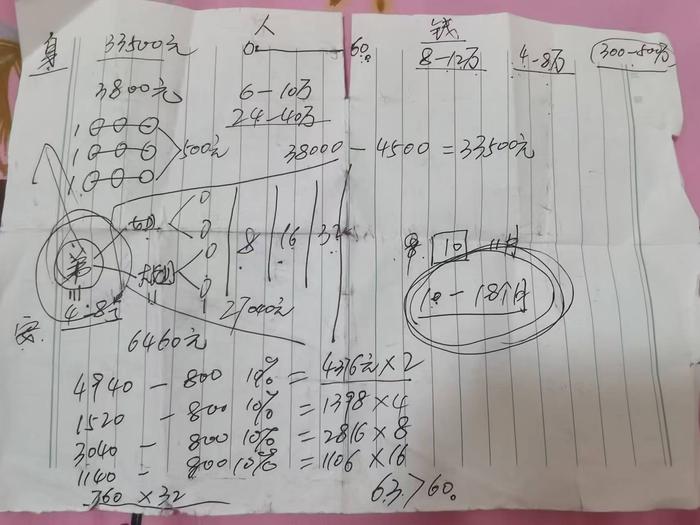 身 33500元 人 钱
0 60 8-12万 4-8万 300-500万
3800元 6-10万
24-40万
1000
1000 500元
1000
38000-4500=33500元
0
0
0
0
8 16 32
10
10-18个月
4-8万
27040元
6460元
安
4940-800 10%=4376元×2
1520-800 10%=1398×4
3040-800 10%=2816×8
1140-800 10%=1106×16
760×32
63>60